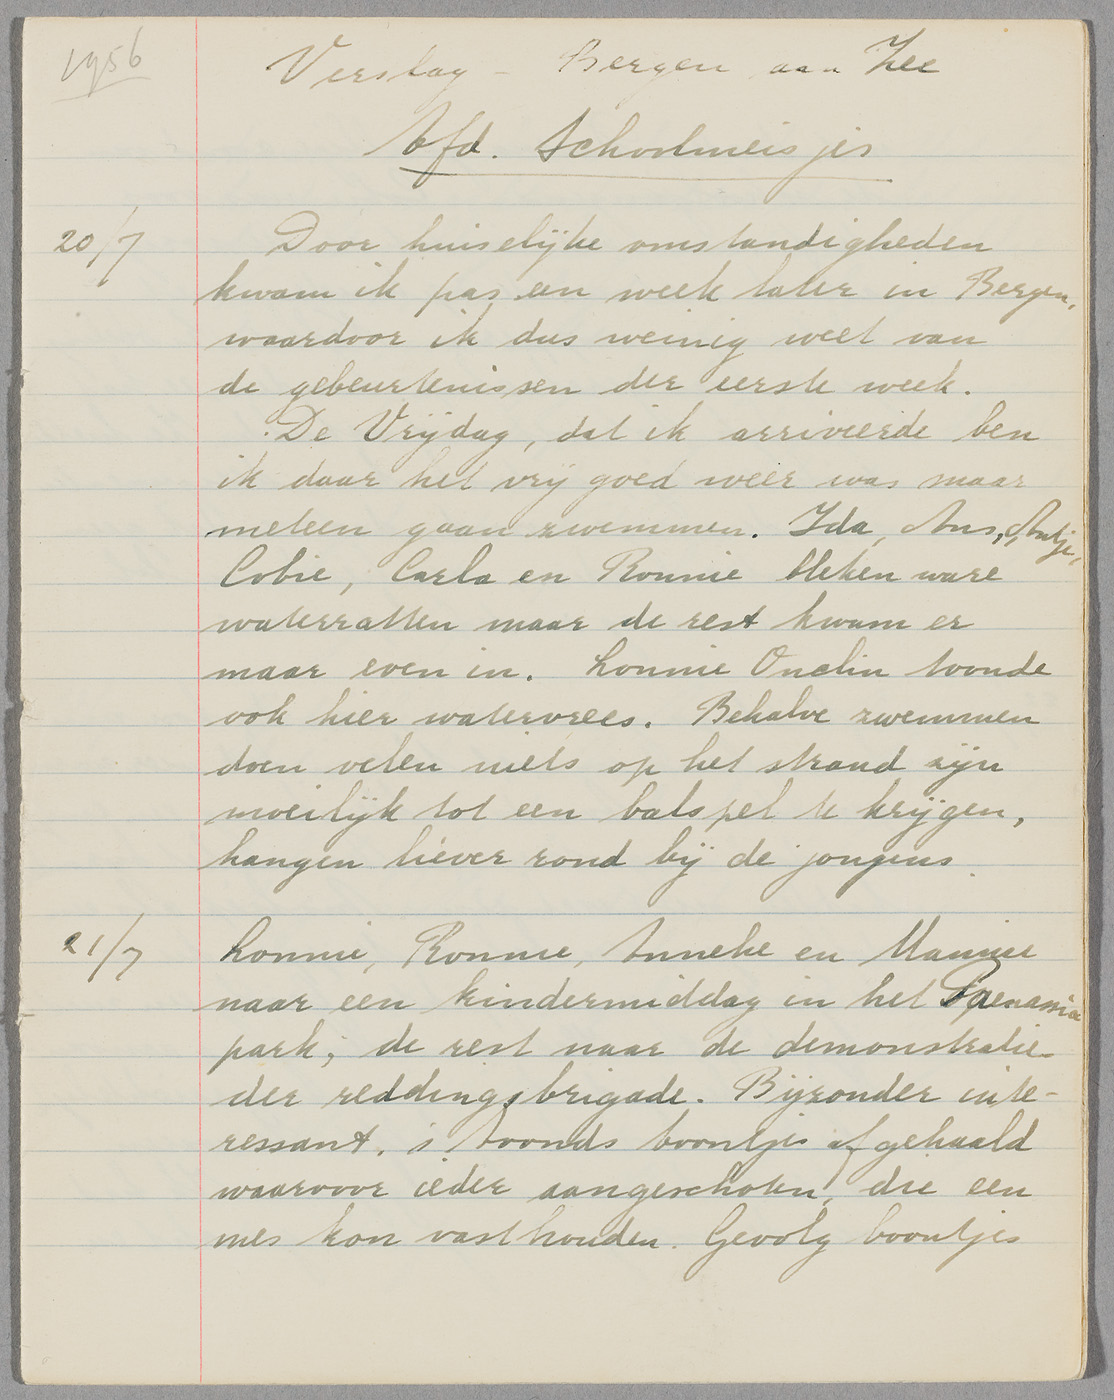 1956
Verslag - Bergen aan Zee
Afd. Schoolmeisjes
20/7 Door huiselijke omstandigheden
kwam ik pas een week later in Bergen,
waardoor ik dus weinig weet van
de gebeurtenissen der eerste week.
De Vrijdag, dat ik arriveerde ben
ik daar het vrij goed weer was maar
meteen gaan zwemmen. Ida, Ans, Antje,
Cobie, Carla en Ronnie bleken ware
waterratten maar de rest kwam er
maar even in. Lonnie Onclin toonde
ook hier watervrees. Behalve zwemmen
doen velen niets op het strand zijn
moeilijk tot een balspel te krijgen,
hangen liever rond bij de jongens.
21/7 Lonnie, Ronnie, Anneke en Mannie
naar een kindermiddag in het
park; de rest naar de demonstratie
der reddingsbrigade. Bijzonder inte-
ressant. 's Avonds boontjes afgehaald
waarvoor ieder aangeschoten, die een
mes kon vasthouden. Gevolg boontjes